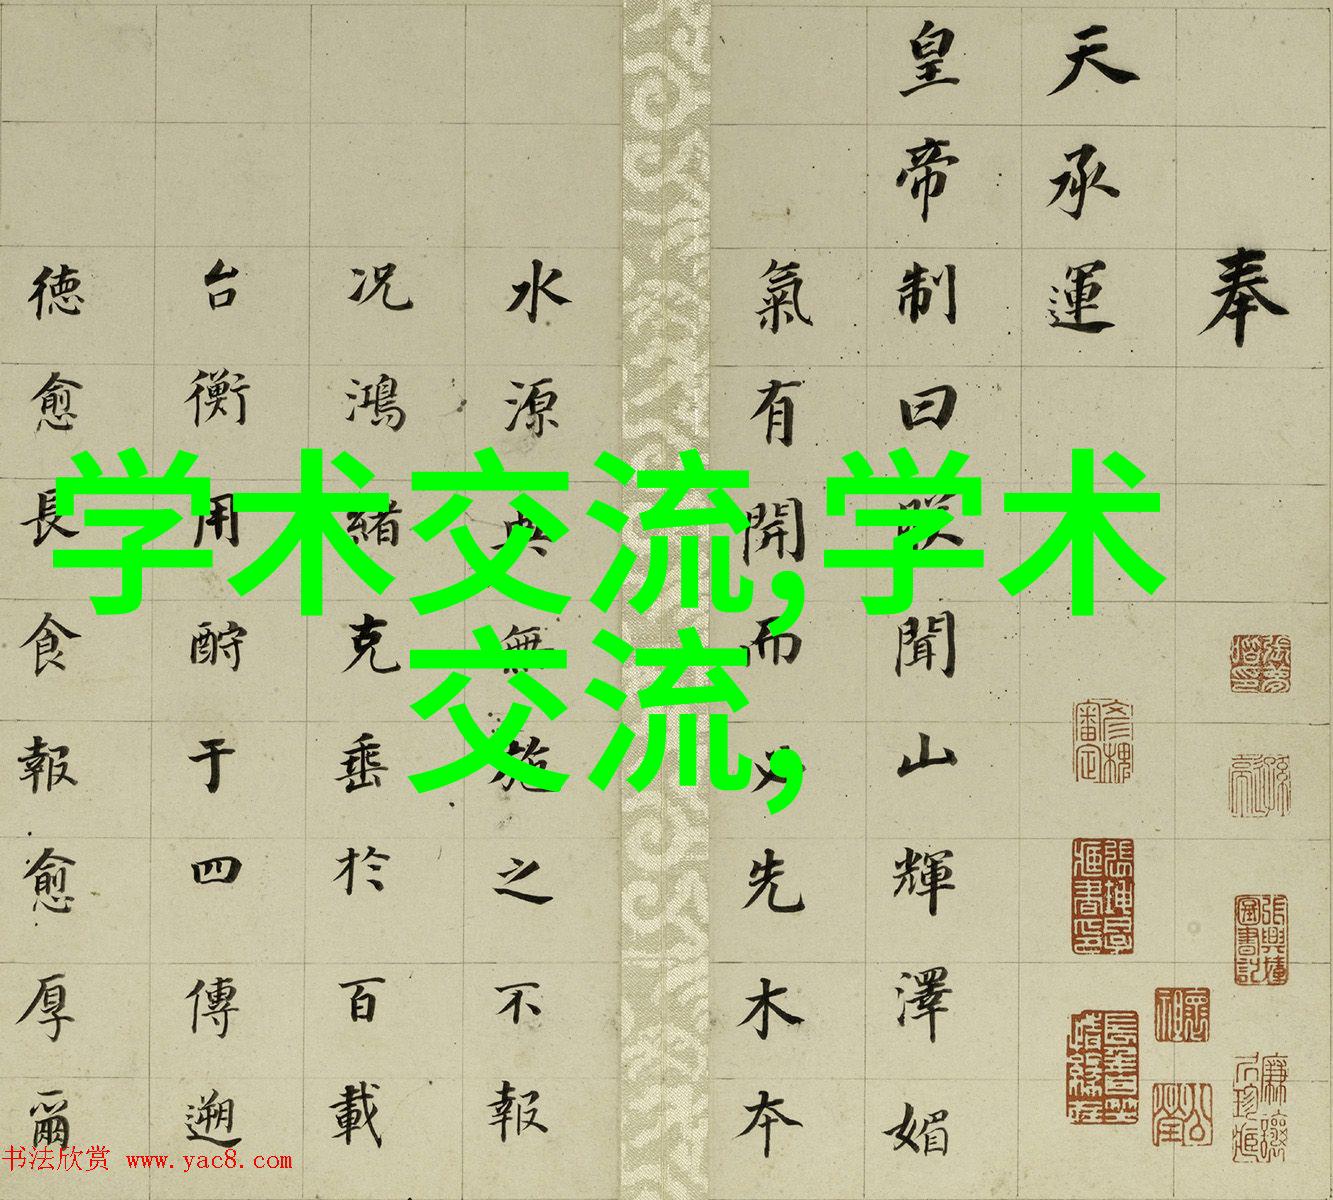 奉
天承運
皇帝制曰朕聞山輝澤媚
氣有開而必先木本
水源典無施之不報
况鴻緒克垂於百載
台衡用酹于四傳遡
德愈長食報愈厚爾
学术交流,学术
交流,
书法欣赏 www.yac8.com